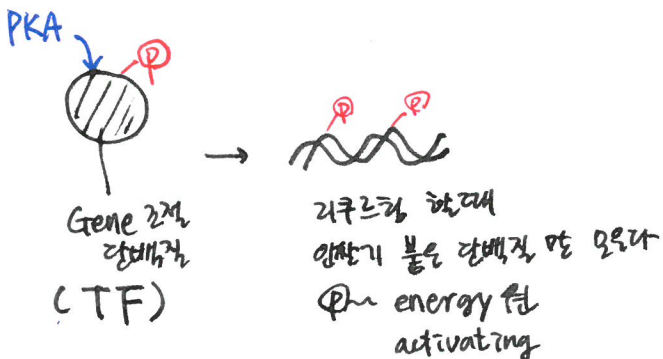 PKA
P
Gene 조절
단백질
(TF)
→
P P
리쿠르팅 할때
인산기 붙은 단백질 만 모은다
P~ energy 원
activating